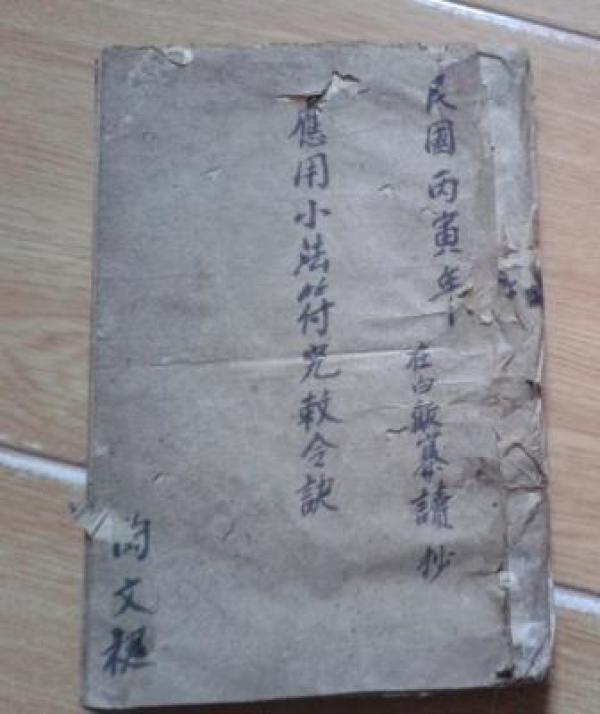 民國丙寅年
在白飯寨讀抄
應用小法符咒敕令訣
文